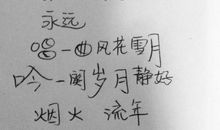 永远
唱一曲风花雪月
吟一阕岁月静好
烟火 流年